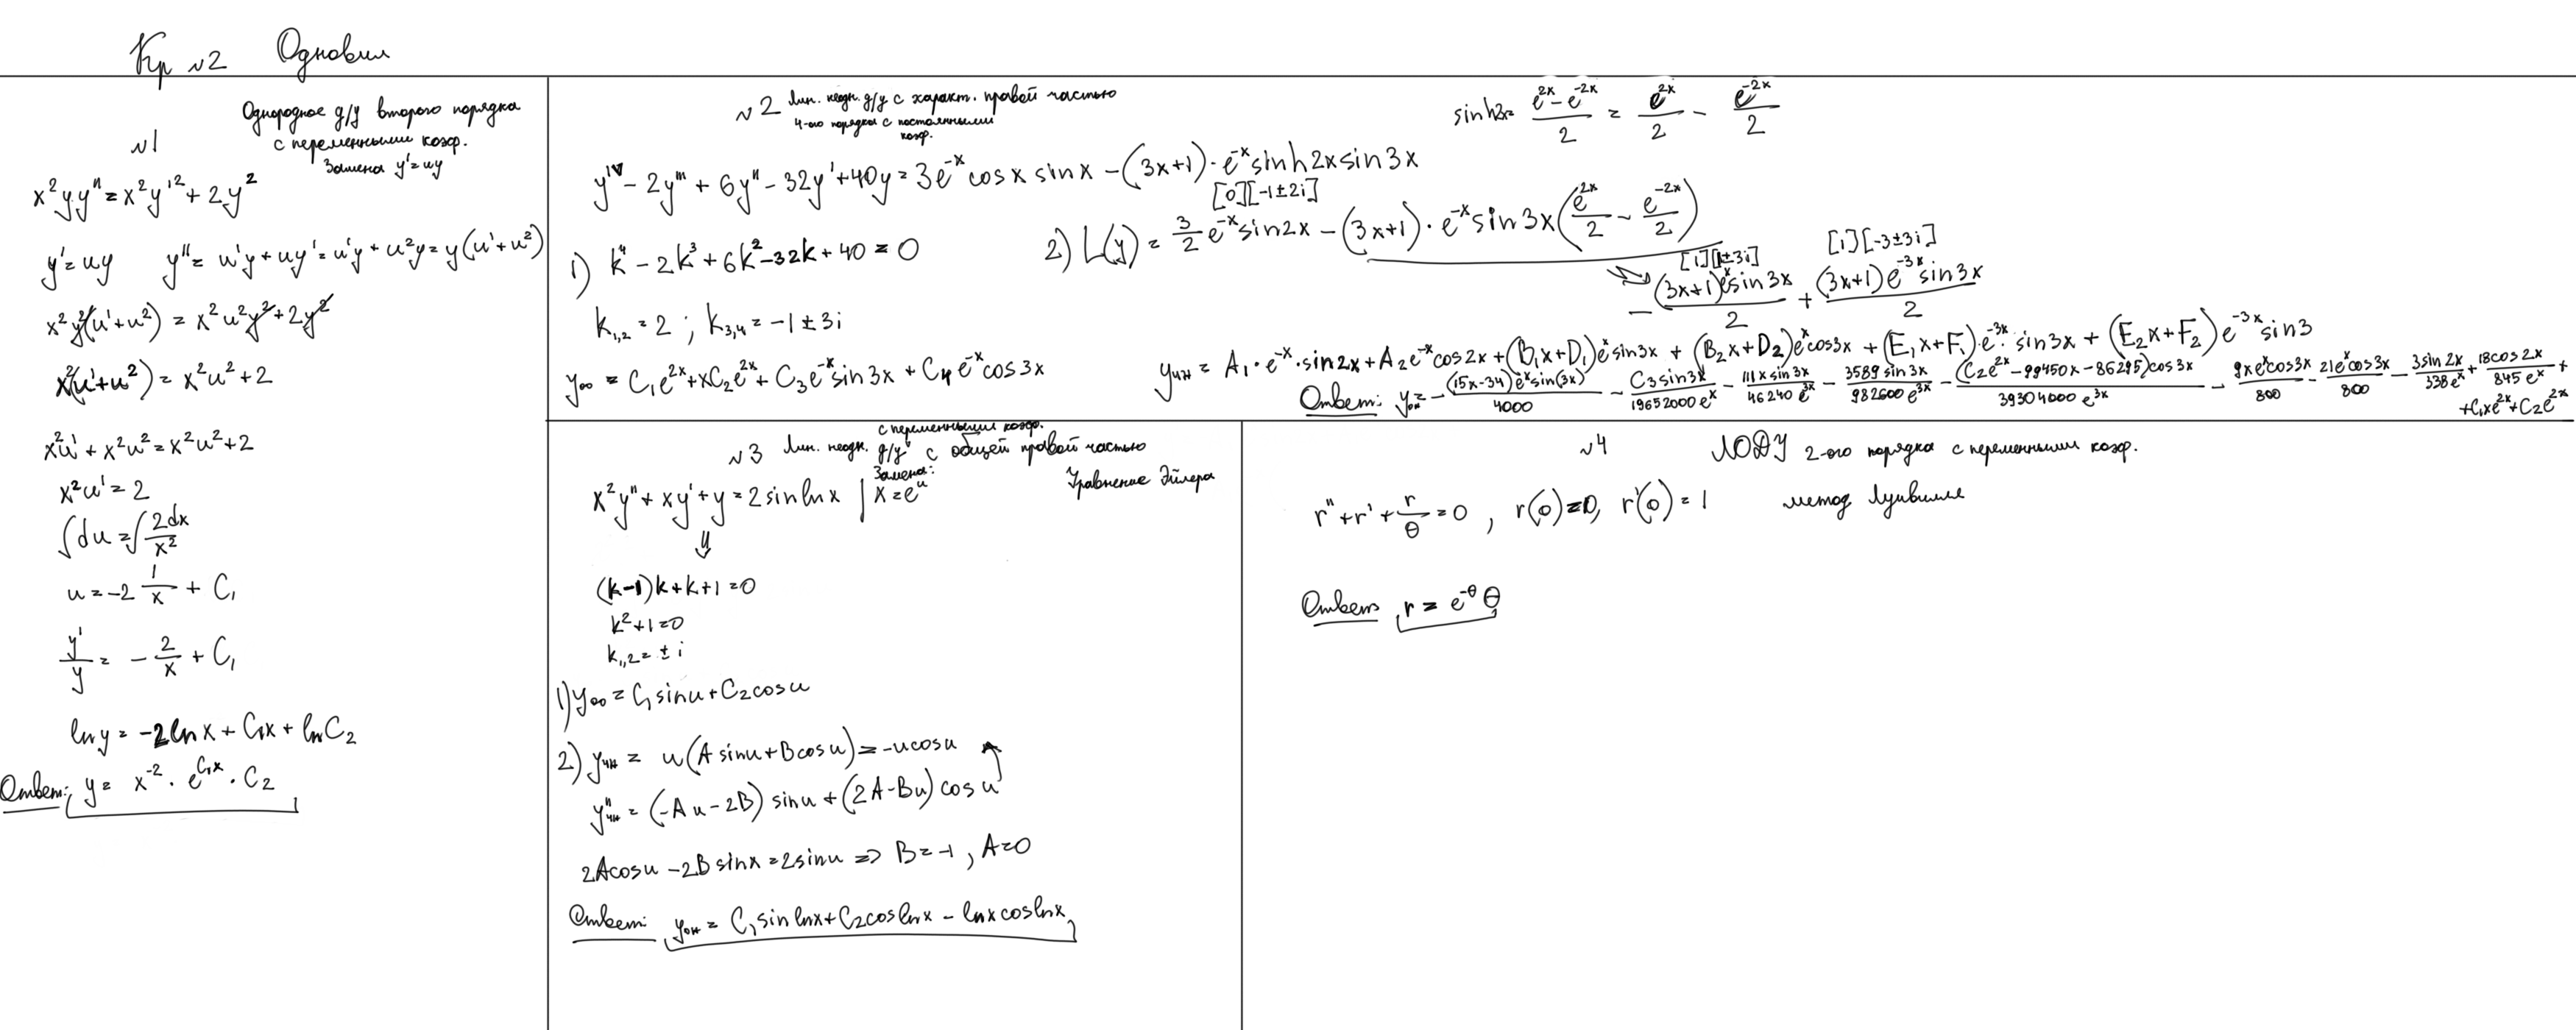 Кр №2 Одновил
№1
Однородное д/у второго порядка
с переменными коэф.
Замена y'=uy
x²yy''=x²y'²+2y²
y'=uy y''=u'y+uy'=u'y+u²y=y(u'+u²)
x²y²(u'+u²)=x²u²y²+2y²
x²(u'+u²)=x²u²+2
x²u'+x²u²=x²u²+2
x²u'=2
∫du=∫2dx/x²
u=-2 1/x + C₁
y'/y = -2/x + C₁
ln y = -2ln x + C₁x + ln C₂
Ответ: y = x⁻² · e^(C₁x) · C₂
№2 Лин. неодн. д/у с характ. правой частью
4-ого порядка с постоянными
коэф.
sinh2x = (e^(2x)-e^(-2x))/2 = e^(2x)/2 - e^(-2x)/2
y^IV - 2y''' + 6y'' - 32y' + 40y = 3e^(-x) cos x sin x - (3x+1)·e^(-x) sinh 2x sin 3x
1) k⁴ - 2k³ + 6k² - 32k + 40 = 0
k₁,₂ = 2 ; k₃,₄ = -1 ± 3i
y₀₀ = C₁e^(2x) + xC₂e^(2x) + C₃e^(-x) sin 3x + C₄e^(-x) cos 3x
[0][-1±2i]
2) L(y) = 3/2 e^(-x) sin 2x - (3x+1)·e^(-x) sin 3x (e^(2x)/2 - e^(-2x)/2)
[1][1±3i] [1][-3±3i]
- (3x+1)e^x sin 3x/2 + (3x+1)e^(-3x) sin 3x/2
yчн = A₁·e^(-x)·sin 2x + A₂e^(-x) cos 2x + (B₁x+D₁)e^x sin 3x + (B₂x+D₂)e^x cos 3x + (E₁x+F₁)·e^(-3x)·sin 3x + (E₂x+F₂)e^(-3x) sin 3
Ответ: yон = - (15x-34)e^x sin(3x)/4000 - C₃ sin 3x/19652000 e^x - 111x sin 3x/46240 e^(3x) - 3589 sin 3x/982600 e^(3x) - (C₂e^(2x) - 99450x - 86295)cos 3x/39304000 e^(3x) - 9xe^x cos 3x/800 - 21e^x cos 3x/800 - 3 sin 2x/338e^x + 18cos 2x/845 e^x +
+C₁xe^(2x)+C₂e^(2x)
№3 Лин. неодн. д/у с общей правой частью
с переменными коэф.
Уравнение Эйлера
Замена:
x²y''+xy'+y=2 sin ln x | x=e^u
⇓
(k-1)k+k+1=0
k²+1=0
k₁,₂=±i
1) y₀₀ = C₁ sin u + C₂ cos u
2) yчн = u(A sin u + B cos u) = -u cos u
y''чн = (-Au-2B) sin u + (2A-Bu) cos u
2A cos u - 2B sin x = 2 sin u => B=-1, A=0
Ответ: yон = C₁ sin ln x + C₂ cos ln x - ln x cos ln x
№4 ЛОДУ 2-ого порядка с переменными коэф.
r''+r'+r/θ=0, r(0)=0, r'(0)=1 метод Лиувилля
Ответ: r = e^(-θ) θ